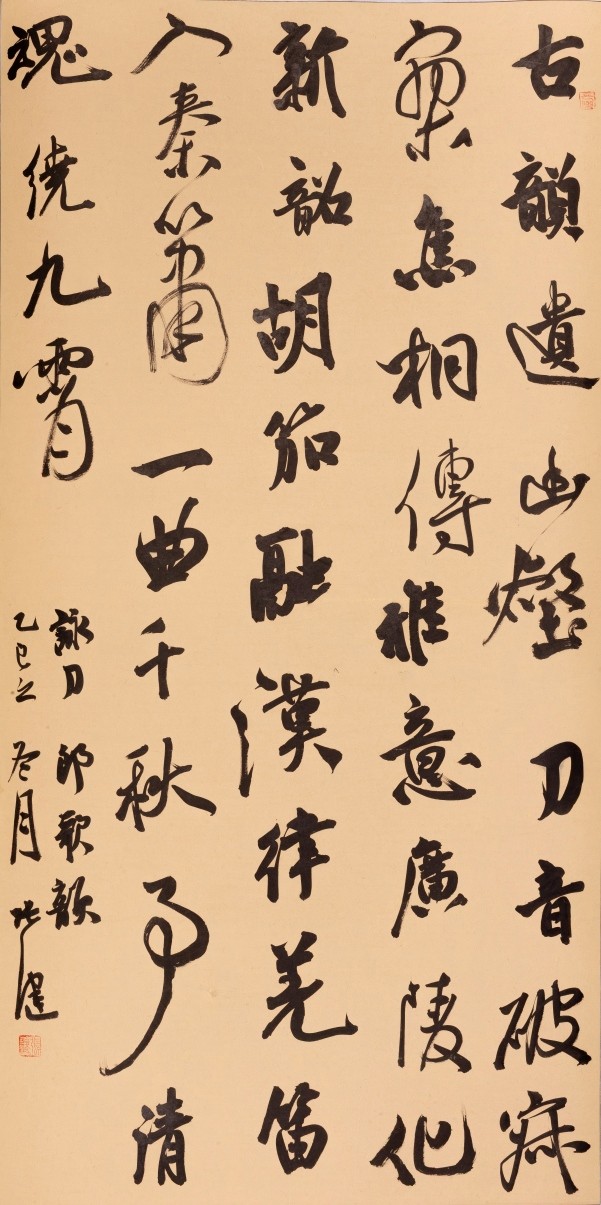 古韻遺幽壑刀音破寂
寥焦桐傳雅意廣陵化
新韶胡笳融漢律羌笛
入秦簫一曲千秋事清
魂繞九霄
詠刀郎歌韻
乙巳之冬月張健